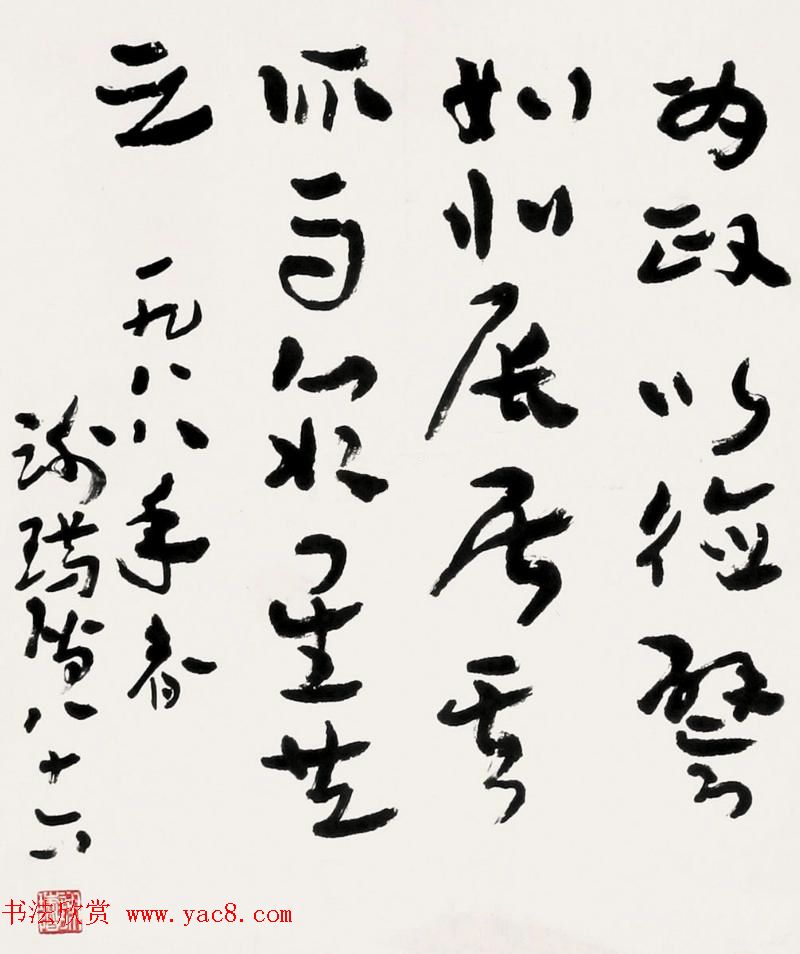 为政以德譬
如北辰居其
所而众星共
之
一九八八年春
谢瑞阶八十六
书法欣赏 www.yac8.com